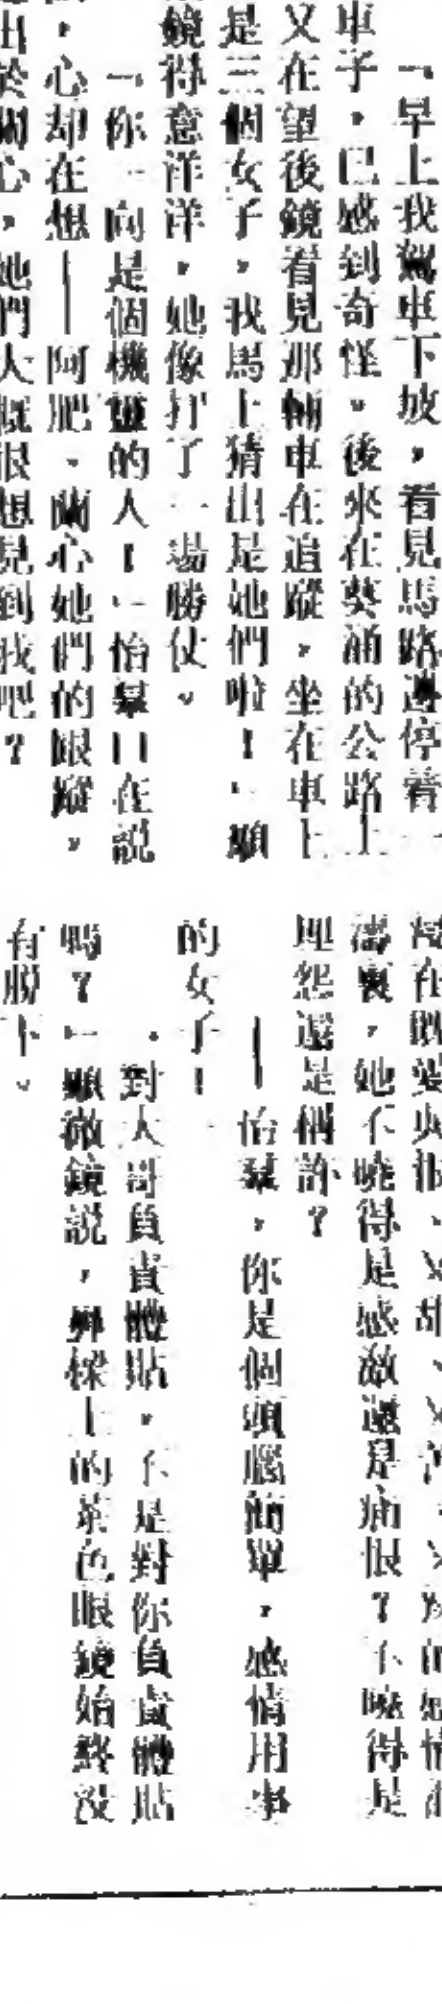 「早上我駕車下坡，看見馬路邊停着一
車子，已感到奇怪。後來在葵涌的公路上
又在望後鏡看見那輛車在追蹤，坐在車上
是三個女子，我馬上猜出是她們啦！」顯
鏡得意洋洋，她像打了一場勝仗。
「你一向是個機靈的人！」怡羣口在說
，心却在想——阿肥、蘭心她們的跟蹤，
出於關心，她們大概很想見到我吧？
她不曉得是感激還是痛恨？不曉得是
埋怨還是稱許？
——怡羣，你是個頭腦簡單，感情用事
的女子！
「對大哥負責體貼，不是對你負責體貼
嗎？」顯微鏡說，鼻樑上的茶色眼鏡始終沒
有脫下。